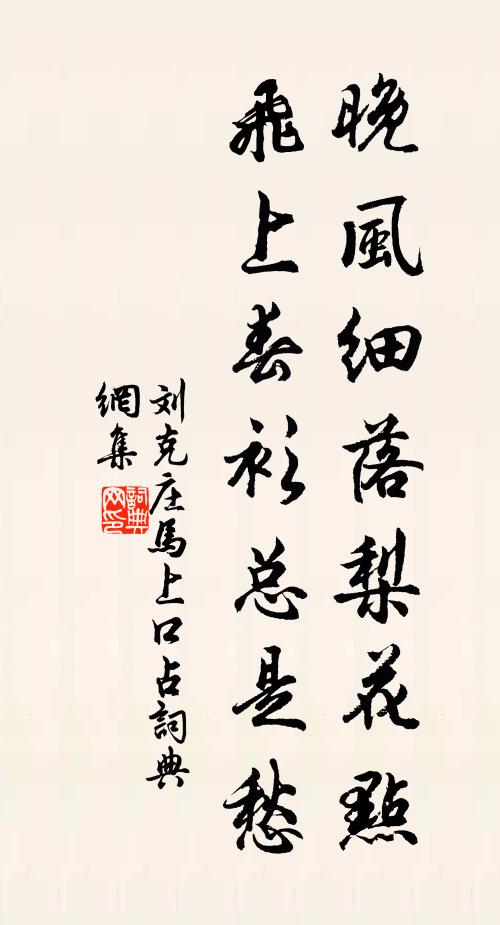 晚風細落梨花點
飛上春衫总是愁
刘克庄馬上口占詞典
網集
詞典网印